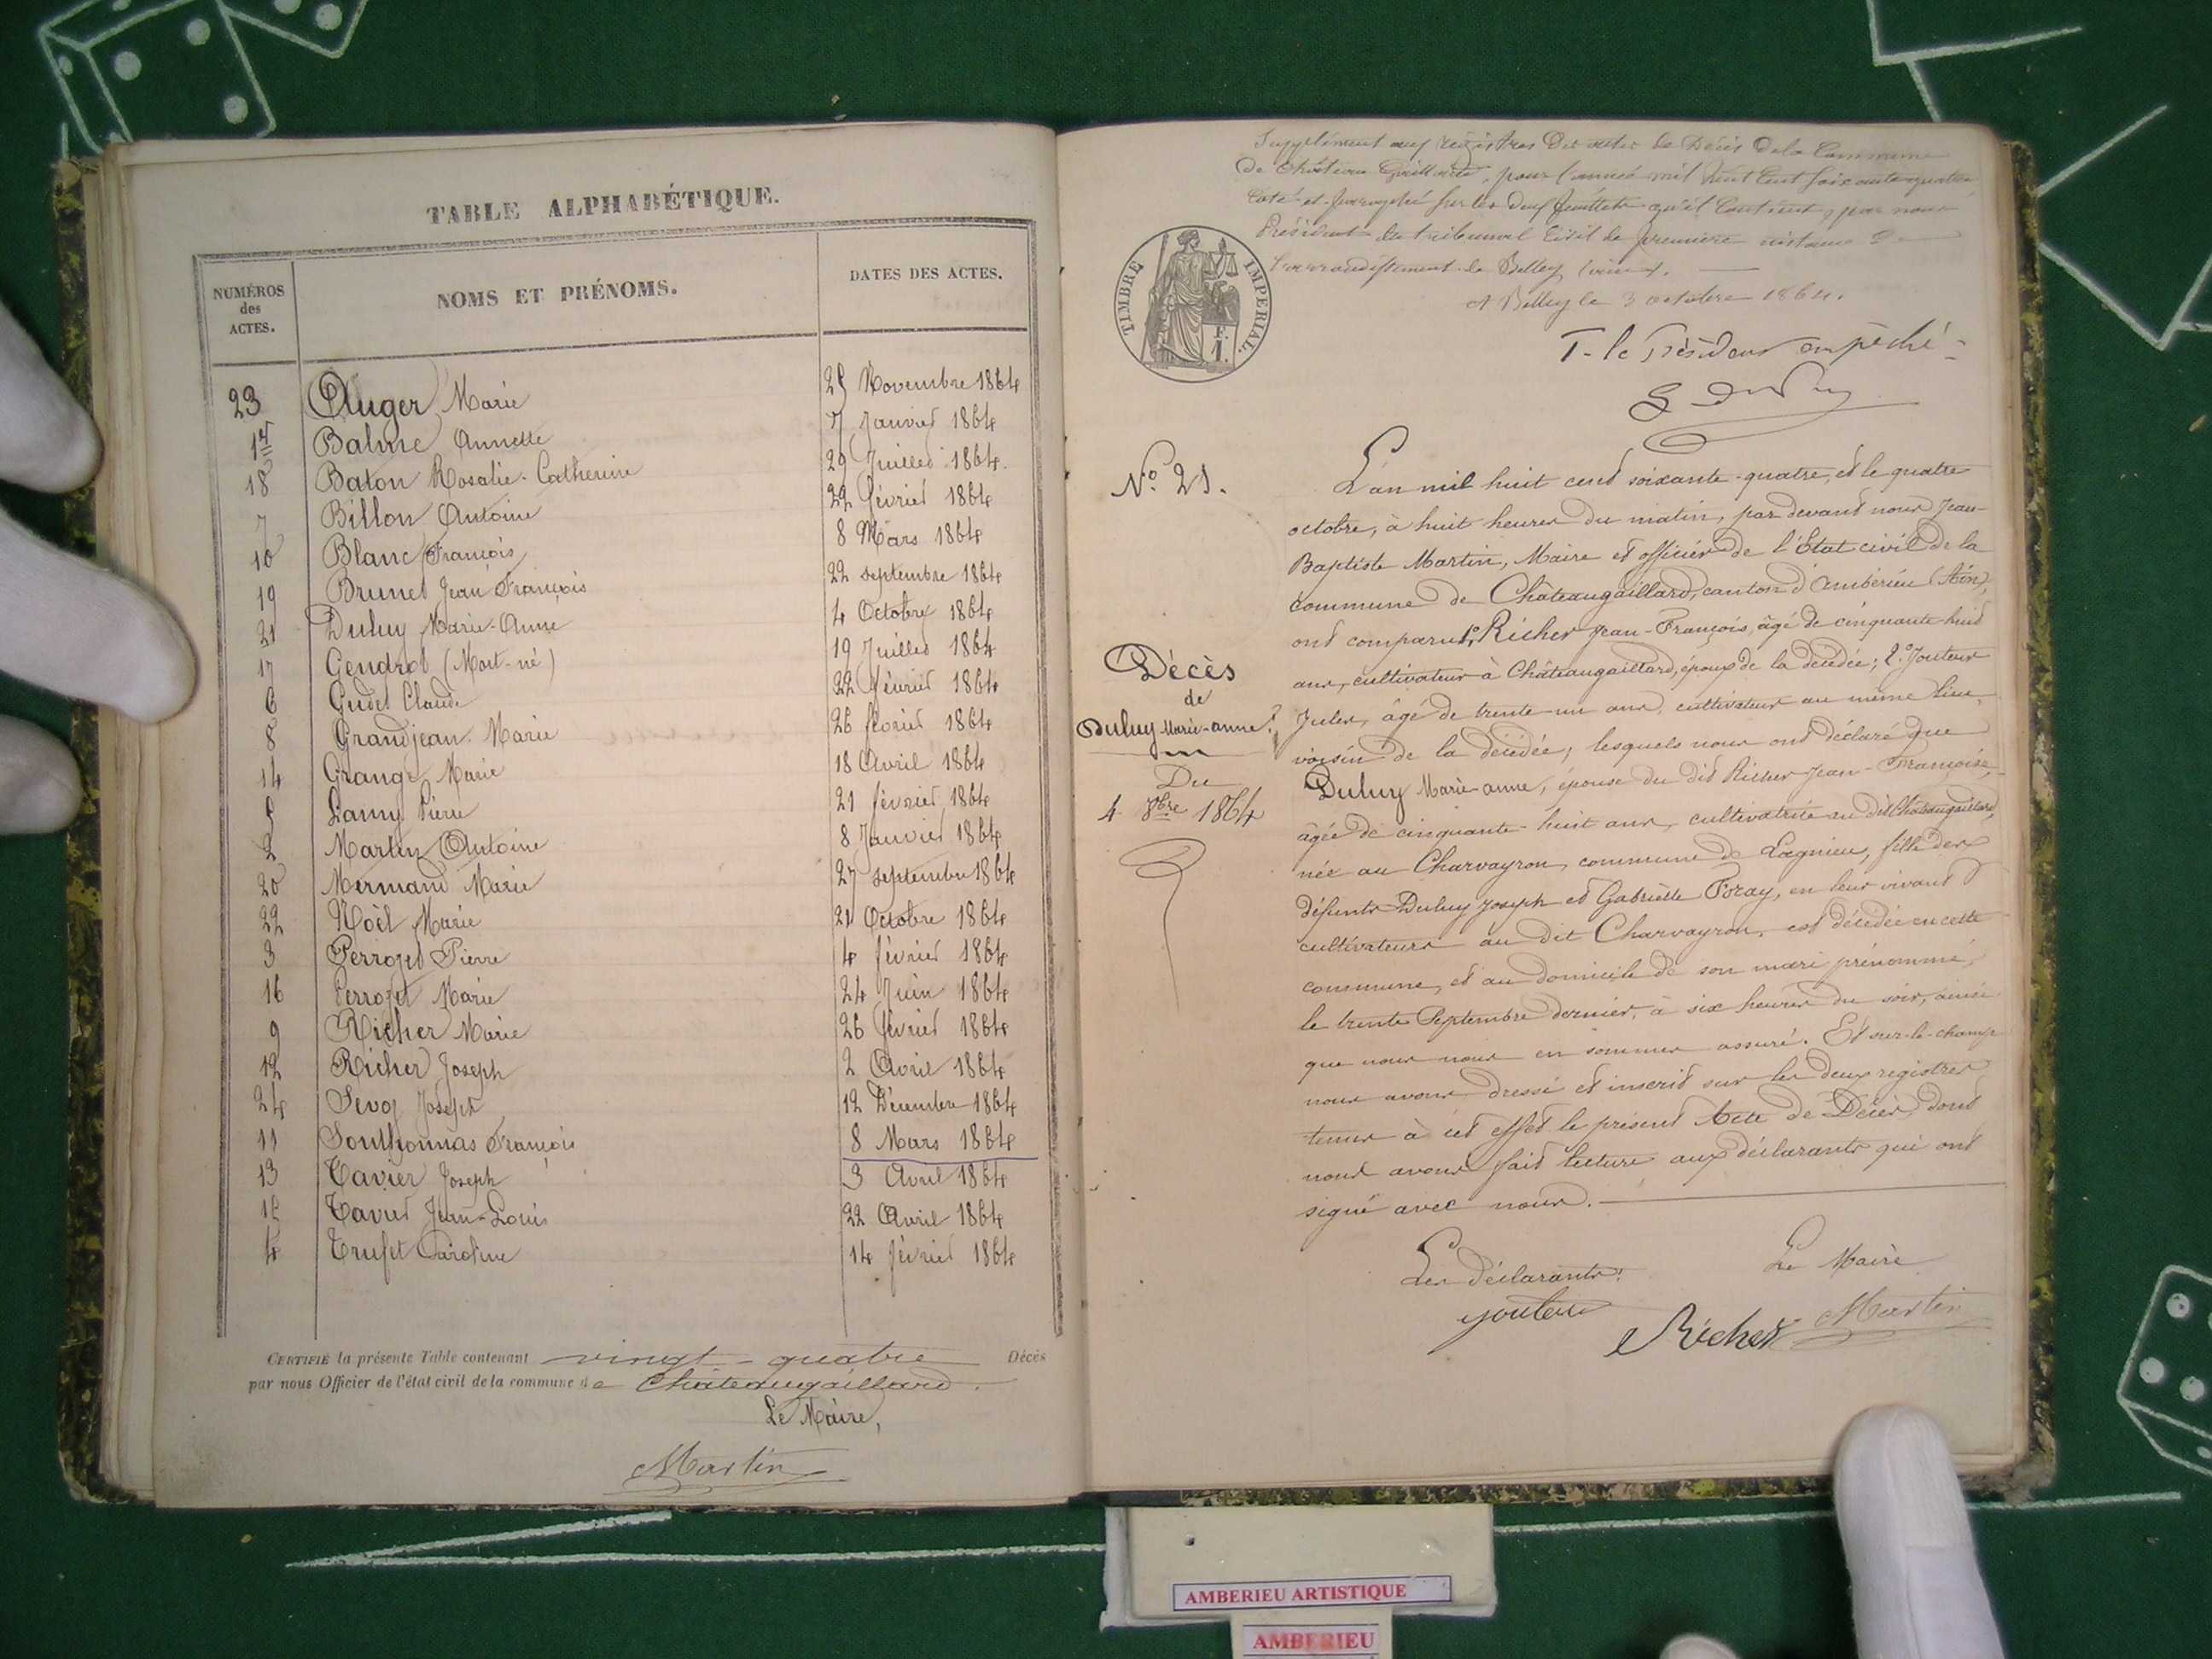 TABLE ALPHABÉTIQUE.
NUMÉROS des ACTES.
NOMS ET PRÉNOMS.
DATES DES ACTES.
23 Auger Marie 25 Novembre 1864
1er Balme Annette 7 Janvier 1864
18 Baton Rosalie-Catherine 29 Juillet 1864.
7 Billon Antoine 22 février 1864
10 Blanc François 8 Mars 1864
19 Brunet Jean François 22 septembre 1864
21 Duluy Marie-Anne 4 Octobre 1864
17 Gendrot (Mort-né) 19 Juillet 1864
6 Gudet Claude 22 février 1864
8 Grandjean Marie 26 février 1864
14 Grange Marie 18 Avril 1864
5 Lamy Pierre 21 février 1864
2 Martin Antoine 8 Janvier 1864
20 Mermand Marie 27 septembre 1864
22 Noël Marie 21 Octobre 1864
3 Perrozet Pierre 4 février 1864
16 Perrozet Marie 24 Juin 1864
9 Richer Marie 26 février 1864
12 Richer Joseph 2 Avril 1864
24 Sevoz Joseph 12 Décembre 1864
11 Southonnas François 8 Mars 1864
13 Tavier Joseph 3 Avril 1864
15 Tavier Jean-Louis 22 Avril 1864
4 Trufet Caroline 14 février 1864
CERTIFIÉ la présente Table contenant vingt-quatre Décès
par nous Officier de l'état civil de la commune de Châteaugaillard.
Le Maire,
Martin
Supplément aux registres des actes de Décès de la Commune
de Château Gaillard, pour l'année mil huit cent soixante quatre
Coté et paraphé sur les deux feuillets qu'il contient, par nous
Président du tribunal Civil de première instance de
l'arrondissement de Belley (ain).
A Belley le 3 octobre 1864.
TIMBRE IMPERIAL.
F. 1.
P. le Président empêché
No. 21.
L'an mil huit cent soixante-quatre, et le quatre
octobre, à huit heures du matin, par devant nous Jean-
Baptiste Martin, Maire et officier de l'État civil de la
commune de Châteaugaillard, canton d'Ambérieu (Ain),
ont comparu 1° Richer Jean-François, âgé de cinquante-huit
ans, cultivateur à Châteaugaillard, époux de la décédée; 2° Jouteur
Jules, âgé de trente-un ans, cultivateur au même lieu,
voisin de la décédée; lesquels nous ont déclaré que
Duluy Marie-anne, épouse du dit Richer Jean-François,
âgée de cinquante-huit ans, cultivatrice au dit Châteaugaillard,
née au Charvayron, commune de Lagnieu, fille des
défunts Duluy Joseph et Gabrielle Foray, en leur vivant
cultivateurs au dit Charvayron, est décédée en cette
commune, et au domicile de son mari prénommé,
le trente Septembre dernier, à six heures du soir, ainsi
que nous nous en sommes assuré. Et sur-le-champ
nous avons dressé et inscrit sur les deux registres
tenus à cet effet le présent Acte de Décès, dont
nous avons fait lecture aux déclarants qui ont
signé avec nous.
Décès
de
Duluy Marie-anne
Du
4 8bre 1864
Les déclarants:
Le Maire
Jouteur
Richer
Martin
AMBERIEU ARTISTIQUE
AMBERIEU